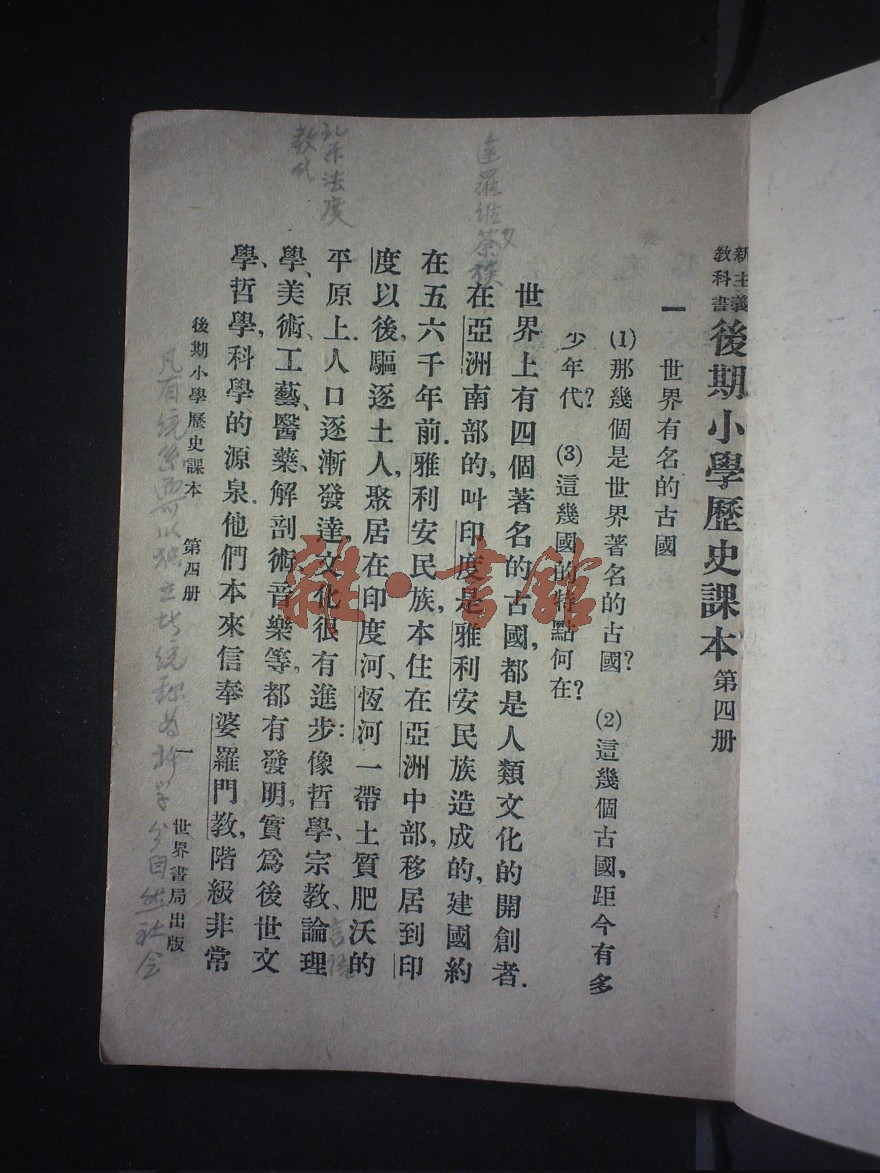 新主義教科書 後期小學歷史課本 第四册
一 世界有名的古國
(1)那幾個是世界著名的古國? (2)這幾個古國,距今有多
少年代? (3)這幾國的特點何在?
世界上有四個著名的古國,都是人類文化的開創者.
在亞洲南部的,叫印度,是雅利安民族造成的,建國約
在五六千年前.雅利安民族,本住在亞洲中部,移居到印
度以後,驅逐土人,聚居在印度河、恆河一帶土質肥沃的
平原上.人口逐漸發達,文化很有進步:像哲學、宗教、論理
學、美術、工藝、醫藥、解剖術、音樂等,都有發明,實爲後世文
學,哲學,科學的源泉.他們本來信奉婆羅門教,階級非常
後期小學歷史課本 第四册 一 世界書局出版
禮樂法度
教化
達羅維荼族
言語
凡有統系而可以獨立者統稱爲科學分自然社会
雜·書館